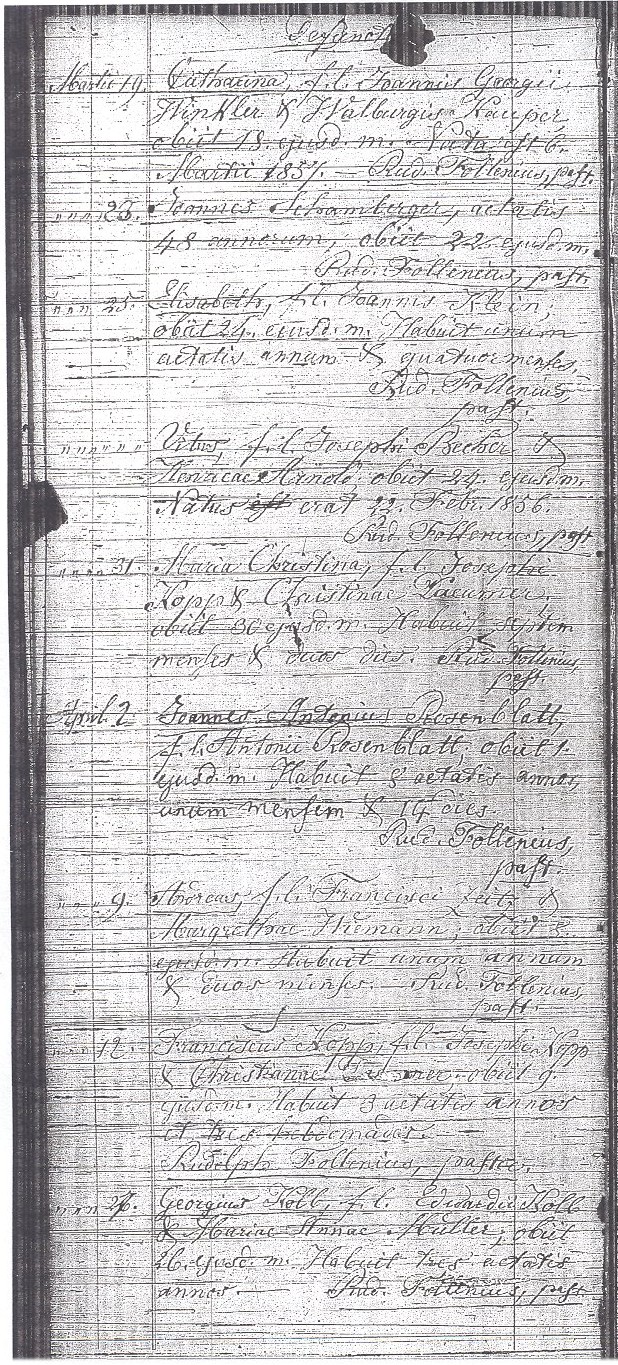 Defuncti
Martii 19. Catharina, f. l. Joannis Georgii
Winkler & Walburgis Kauper,
obiit 18. ejusd. m. Nata est 6.
Martii 1857. — Rud. Follenius, past.
" " " 23. Joannes Schamberger, aetatis
48 annorum, obiit 22 ejusd. m.
Rud. Follenius, past.
" " " 25. Elisabeth, f. l. Joannis Klein;
obiit 24. ejusd. m. Habuit unum
aetatis annum & quatuor menses.
Rud. Follenius,
past.
" " " " " " Vitus, f. l. Josephi Becher &
Henricae Arnold. obiit 24. ejusd. m.
Natus est erat 22. Febr. 1856.
Rud. Follenius, past.
" " " 31. Maria Christina, f. l. Josephi
Kopp & Christinae
obiit 30 ejusd. m. Habuit septem
menses & duos dies. Rud. Follenius,
past.
April. 2 Joannes Antonius Rosenblatt,
f. l. Antonii Rosenblatt; obiit 1.
ejusd. m. Habuit aetatis annos,
unum mensem & 14 dies.
Rud. Follenius,
past.
" " " 9. Andreas, f. l. Francisci Zeitz &
Margrethae Wiemann; obiit 8.
ejusd. m. Habuit unum annum
& duos menses. — Rud. Follenius,
past.
" " " 12. Franciscus Kopp, f. l. Josephi Kopp
& Christianae obiit 9.
ejusd. m. Habuit 3 aetatis annos
et tres hebdomades. —
Rudolph Follenius, pastor.
" " " Georgius Kolb, f. l. Eduardi Kolb
& Mariae Annae Müller; obiit
26. ejusd. m. Habuit tres aetatis
annos. — Rud. Follenius, past.